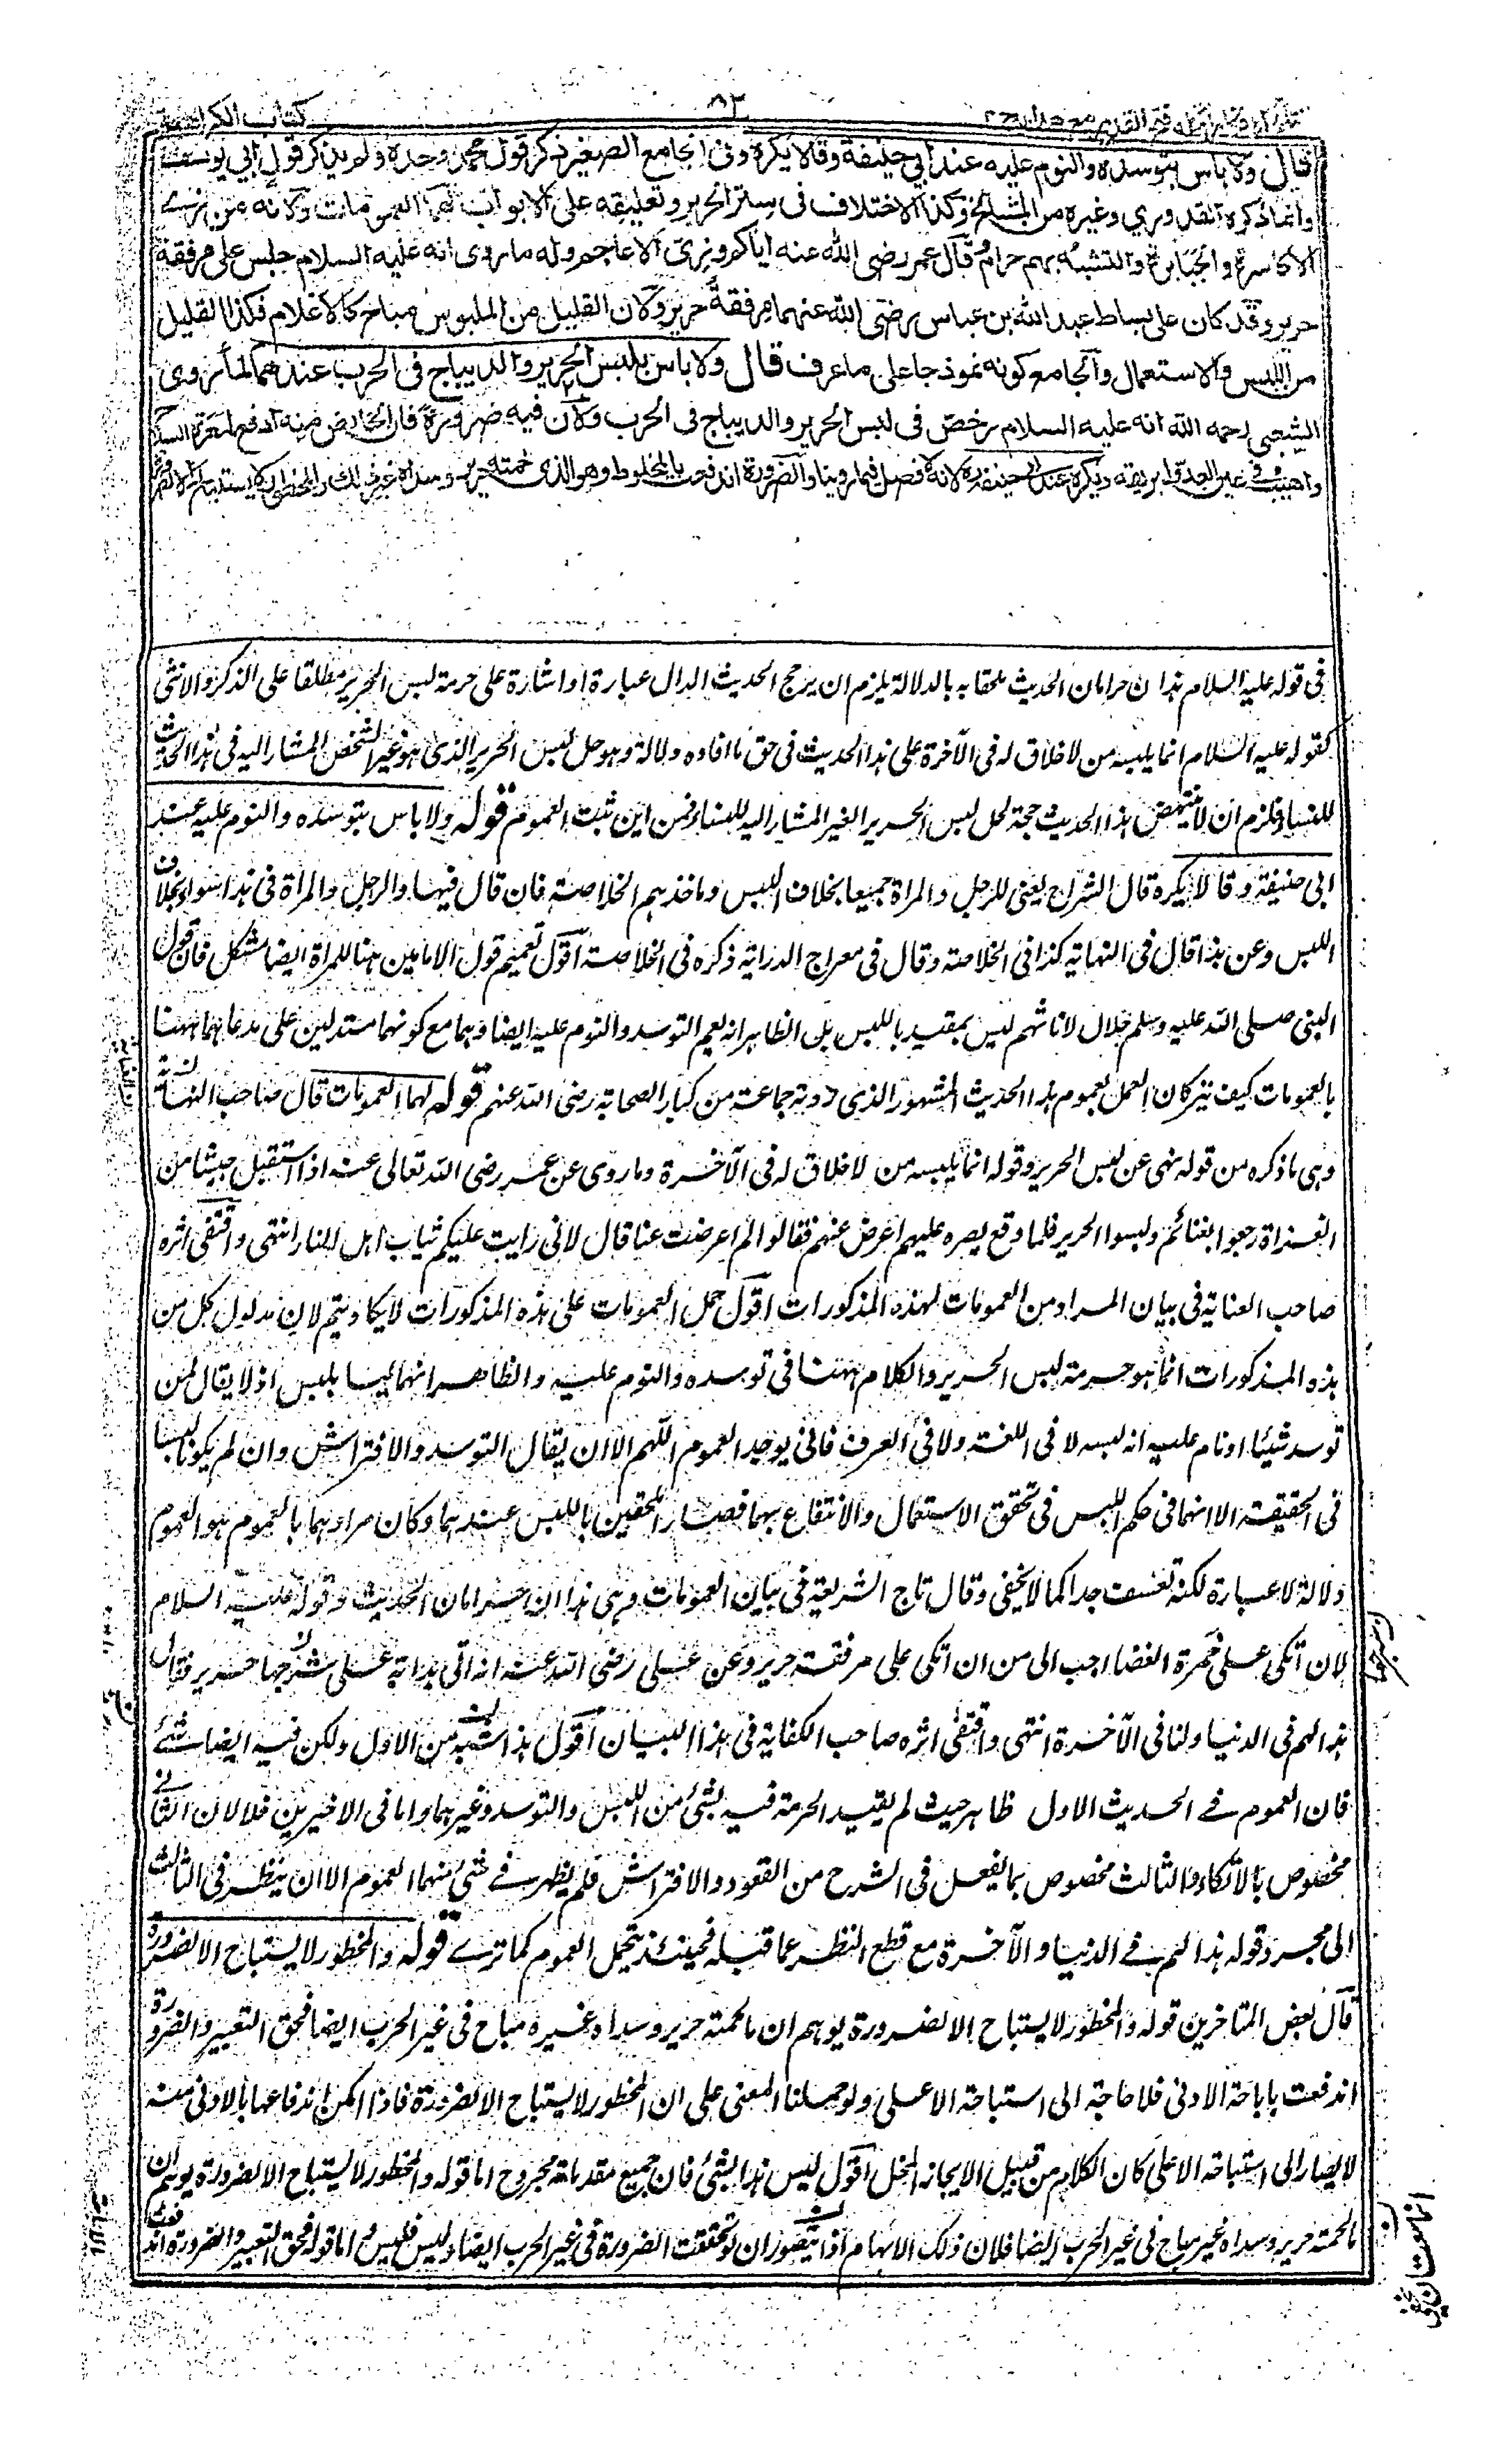 كتاب الكراهية
٨٣
قال ولا باس بتوسده والنوم عليه عند ابي حنيفة وقالا يكره وفي الجامع الصغير ذكر قول محمد وحده ولم يذكر قول ابي يوسف
وانما ذكره القدوري وغيره من المشايخ وكذا الاختلاف في ستر الحرير وتعليقه على الابواب لهما العمومات ولانه من زي
الاكاسرة والجبابرة والتشبه بهم حرام قال عمر رضي الله عنه اياكم وزي الاعاجم وله ما روي انه عليه السلام جلس على مرفقة
حرير وقد كان على بساط عبد الله بن عباس رضي الله عنهما مرفقة حرير ولان القليل من الملبوس مباح كالاعلام فكذا القليل
من اللبس والاستعمال والجامع كونه نموذجا على ما عرف قال ولا باس بلبس الحرير والديباج في الحرب عندهما لما روى
الشعبي رحمه الله انه عليه السلام رخص في لبس الحرير والديباج في الحرب ولان فيه ضرورة فان الخالص منه ادفع لمعرة السلاح
واهيب في عين العدو لبريقه ويكره عند ابي حنيفة لانه لا فصل فيما روينا والضرورة اندفعت بالمخلوط وهو الذي لحمته حرير وسداه غير ذلك والمحظور لا يستباح الا لضرورة
في قوله عليه السلام هذان حرامان الحديث ملحقا به بالدلالة يلزم ان يرجح الحديث الدال عبارة او اشارة على حرمة لبس الحرير مطلقا على الذكر والانثى
كقوله عليه السلام انما يلبسه من لا خلاق له في الآخرة على هذا الحديث في حق ما افاده دلالة وهو حل لبس الحرير الذي هو غير الشخص المشار اليه في هذا الحديث
للنساء فلزم ان لا ينتهض هذا الحديث حجة لحل لبس الحرير الغير المشار اليه للنساء فمن اين ثبت العموم قوله ولا باس بتوسده والنوم عليه عند
ابي حنيفة وقالا يكره قال الشراح يعني للرجل والمراة جميعا بخلاف اللبس وماخذهم الخلاصة فان قال فيها والرجل والمراة في هذا سواء بخلاف
اللبس وعن هذا قال في النهاية كذا في الخلاصة وقال في معراج الدراية ذكره في الخلاصة اقول تعميم قول الامامين هنا للمراة ايضا مشكل فان قول
النبي صلى الله عليه وسلم حلال لاناثهم ليس بمقيد باللبس بل الظاهر انه يعم التوسد والنوم عليه ايضا وهما مع كونهما مستدلين على مدعاهما ههنا
بالعمومات كيف يتركان العمل بعموم هذا الحديث المشهور الذي روته جماعة من كبار الصحابة رضي الله عنهم قوله لهما العمومات قال صاحب النهاية
وهي ما ذكره من قوله نهى عن لبس الحرير وقوله انما يلبسه من لا خلاق له في الآخرة وما روي عن عمر رضي الله تعالى عنه اذا استقبل جيشا من
الغزاة رجعوا بغنائم ولبسوا الحرير فلما وقع بصره عليهم اعرض عنهم فقالوا لم اعرضت عنا قال لاني رايت عليكم ثياب اهل النار انتهى واقتفى اثره
صاحب العناية في بيان المراد من العمومات لهذه المذكورات اقول حمل العمومات على هذه المذكورات لا يكاد يتم لان مدلول كل من
هذه المذكورات انما هو حرمة لبس الحرير والكلام ههنا في توسده والنوم عليه والظاهر انهما ليسا بلبس اذ لا يقال لمن
توسد شيئا او نام عليه انه لبسه لا في اللغة ولا في العرف فانى يوجد العموم اللهم الا ان يقال التوسد والافتراش وان لم يكونا لبسا
في الحقيقة الا انهما في حكم اللبس في تحقق الاستعمال والانتفاع بهما فصارا ملحقين باللبس عندهما وكان مرادهما بالعموم هو العموم
دلالة لا عبارة لكنه تعسف جدا كما لا يخفى وقال تاج الشريعة في بيان العمومات وهي هذا ان حرامان الحديث وقوله عليه السلام
لان اتكي على جمرة الغضا احب الى من ان اتكي على مرفقة حرير وعن علي رضي الله عنه انه اتي بدابة على سرجها حرير فقال
هذا لهم في الدنيا ولنا في الآخرة انتهى واقتفى اثره صاحب الكفاية في هذا البيان اقول هذا اشبه من الاول ولكن فيه ايضا شئ
فان العموم في الحديث الاول ظاهر حيث لم يقيد الحرمة فيه بشئ من اللبس والتوسد وغيرهما واما في الاخيرين فلا لان الثاني
مخصوص بالاتكاء والثالث مخصوص بما يفعل في السرج من القعود والافتراش فلم يظهر في شئ منهما العموم الا ان ينظر في الثالث
الى مجرد قوله هذا لهم في الدنيا والآخرة مع قطع النظر عما قبله فحينئذ يتحمل العموم كما ترى قوله والمحظور لا يستباح الا لضرورة
قال بعض المتاخرين قوله والمحظور لا يستباح الا لضرورة يوهم ان ما لحمته حرير وسداه غيره مباح في غير الحرب ايضا فحق التعبير والضرورة
اندفعت باباحة الادنى فلا حاجة الى استباحة الاعلى ولو حملنا المعنى على ان المحظور لا يستباح الا لضرورة فاذا امكن اندفاعها بالادنى منه
لا يصار الى استباحة الاعلى كان الكلام من قبيل الايجاز المخل اقول ليس هذا بشئ فان جميع مقدماته مجروح اما قوله والمحظور لا يستباح الا لضرورة يوهم ان
ما لحمته حرير وسداه غير مباح في غير الحرب ايضا فلان ذلك الايهام اذا يتصور ان لو تحققت الضرورة في غير الحرب ايضا وليس فليس واما قوله فحق التعبير والضرورة اندفعت